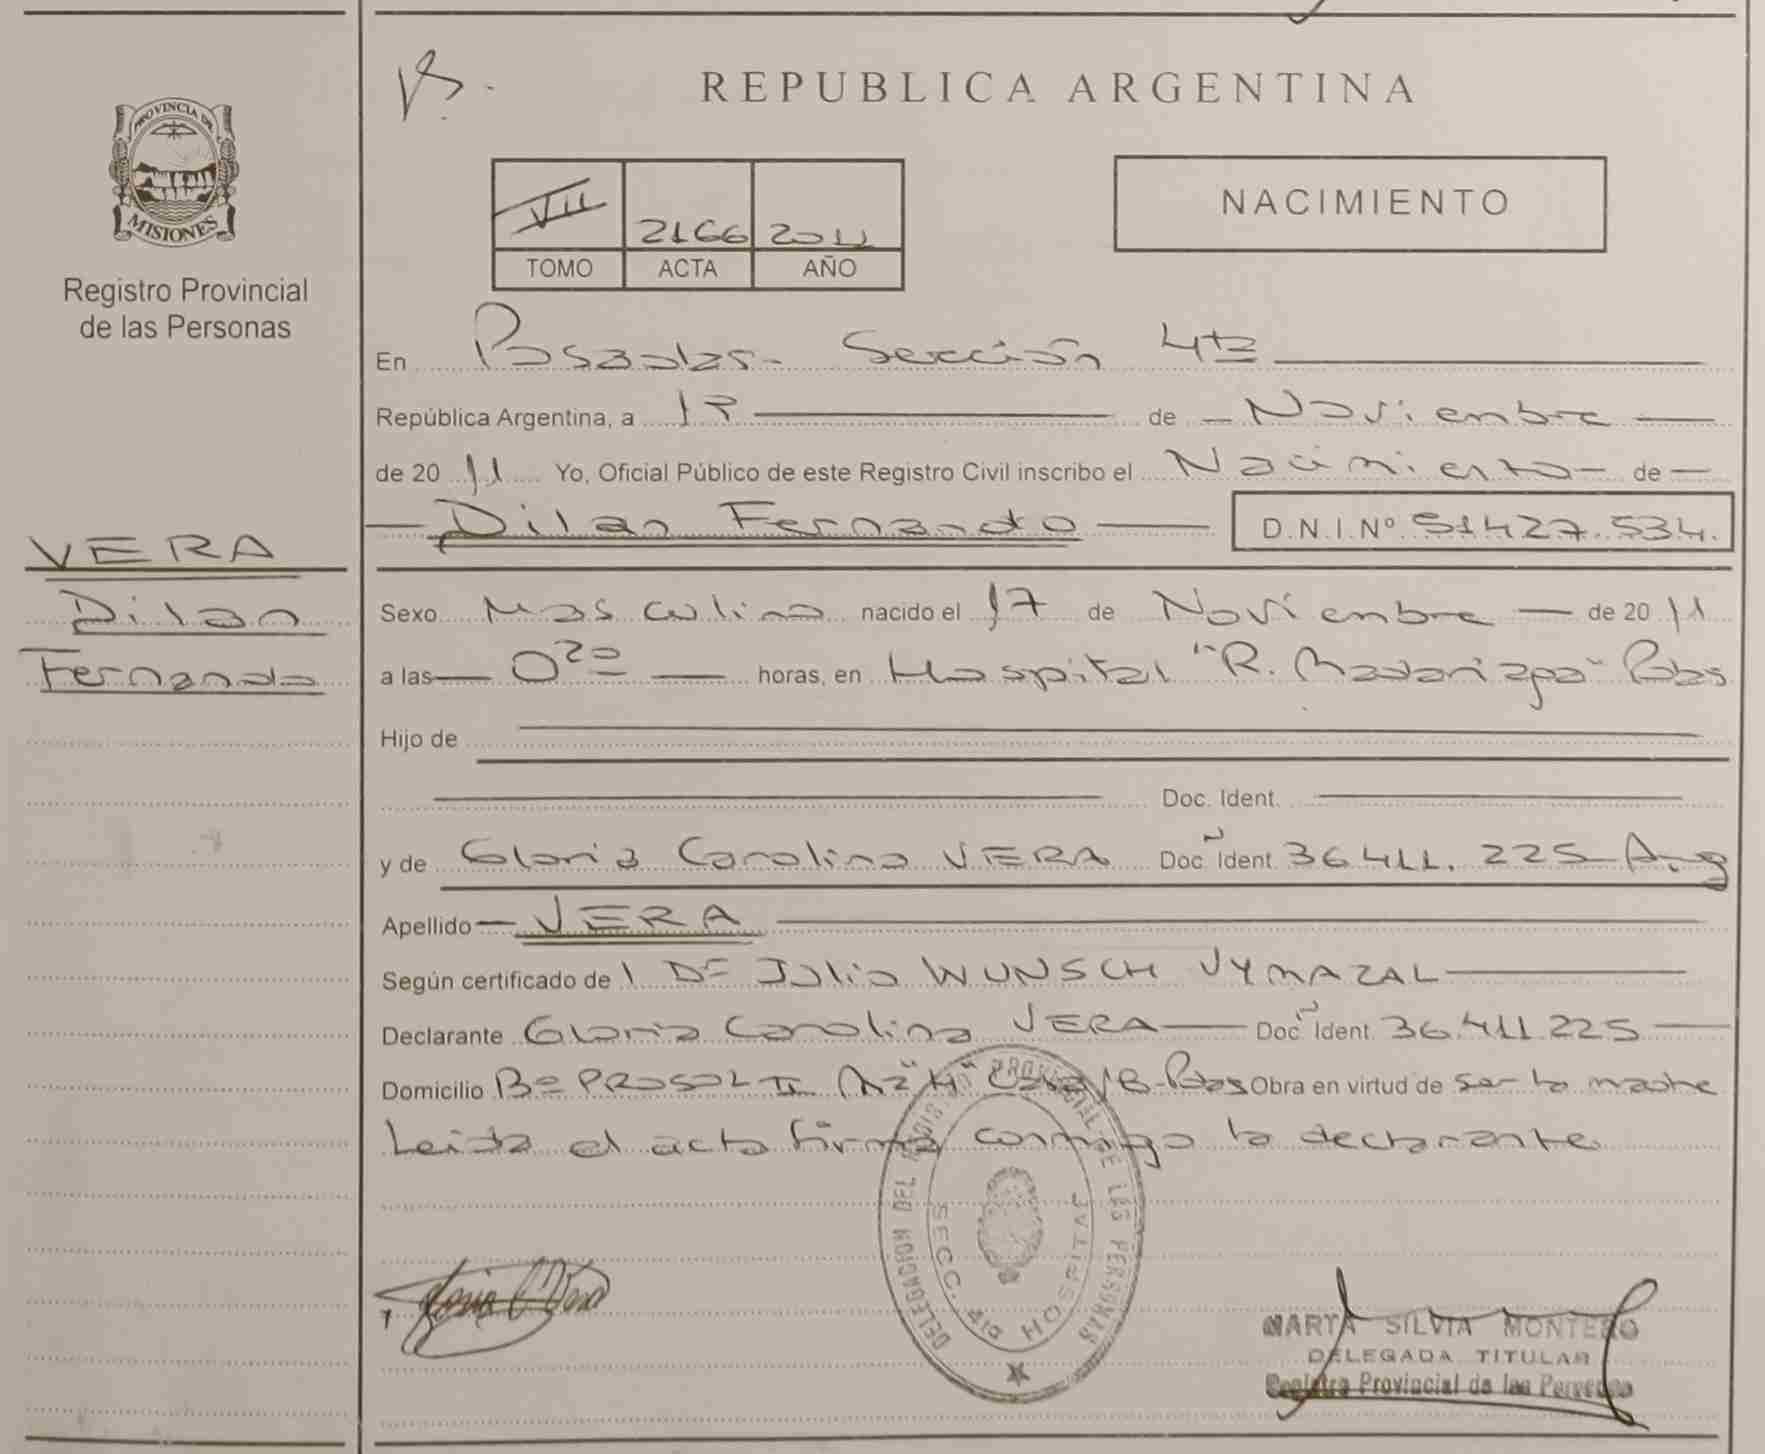 PROVINCIA DE
MISIONES
Registro Provincial
de las Personas
VERA
Dilan
Fernando
REPUBLICA ARGENTINA
VII 2166 2011
TOMO ACTA AÑO
NACIMIENTO
En Posadas - Sección 4ta
República Argentina, a 17 de Noviembre
de 2011 Yo, Oficial Público de este Registro Civil inscribo el Nacimiento de
Dilan Fernando D.N.I.Nº 51427.534.
Sexo Masculino nacido el 17 de Noviembre de 2011
a las 0 20 horas, en Hospital "R. Madariaga" Pdas
Hijo de
Doc. Ident.
y de Gloria Carolina VERA Doc Ident. 36411.225 Arg
Apellido VERA
Según certificado de Julio WUNSCH VYMAZAL
Declarante Gloria Carolina VERA Doc Ident. 36.411.225
Domicilio Bº PROSOL II Mz "H" Pdas Obra en virtud de ser la madre
Leida el acta firma conmigo la declarante
DELEGACION DEL REGISTRO PROVINCIAL DE LAS PERSONAS
SECC. 4ta HOSPITAL
MARTA SILVIA MONTERO
DELEGADA TITULAR
Registro Provincial de las Personas